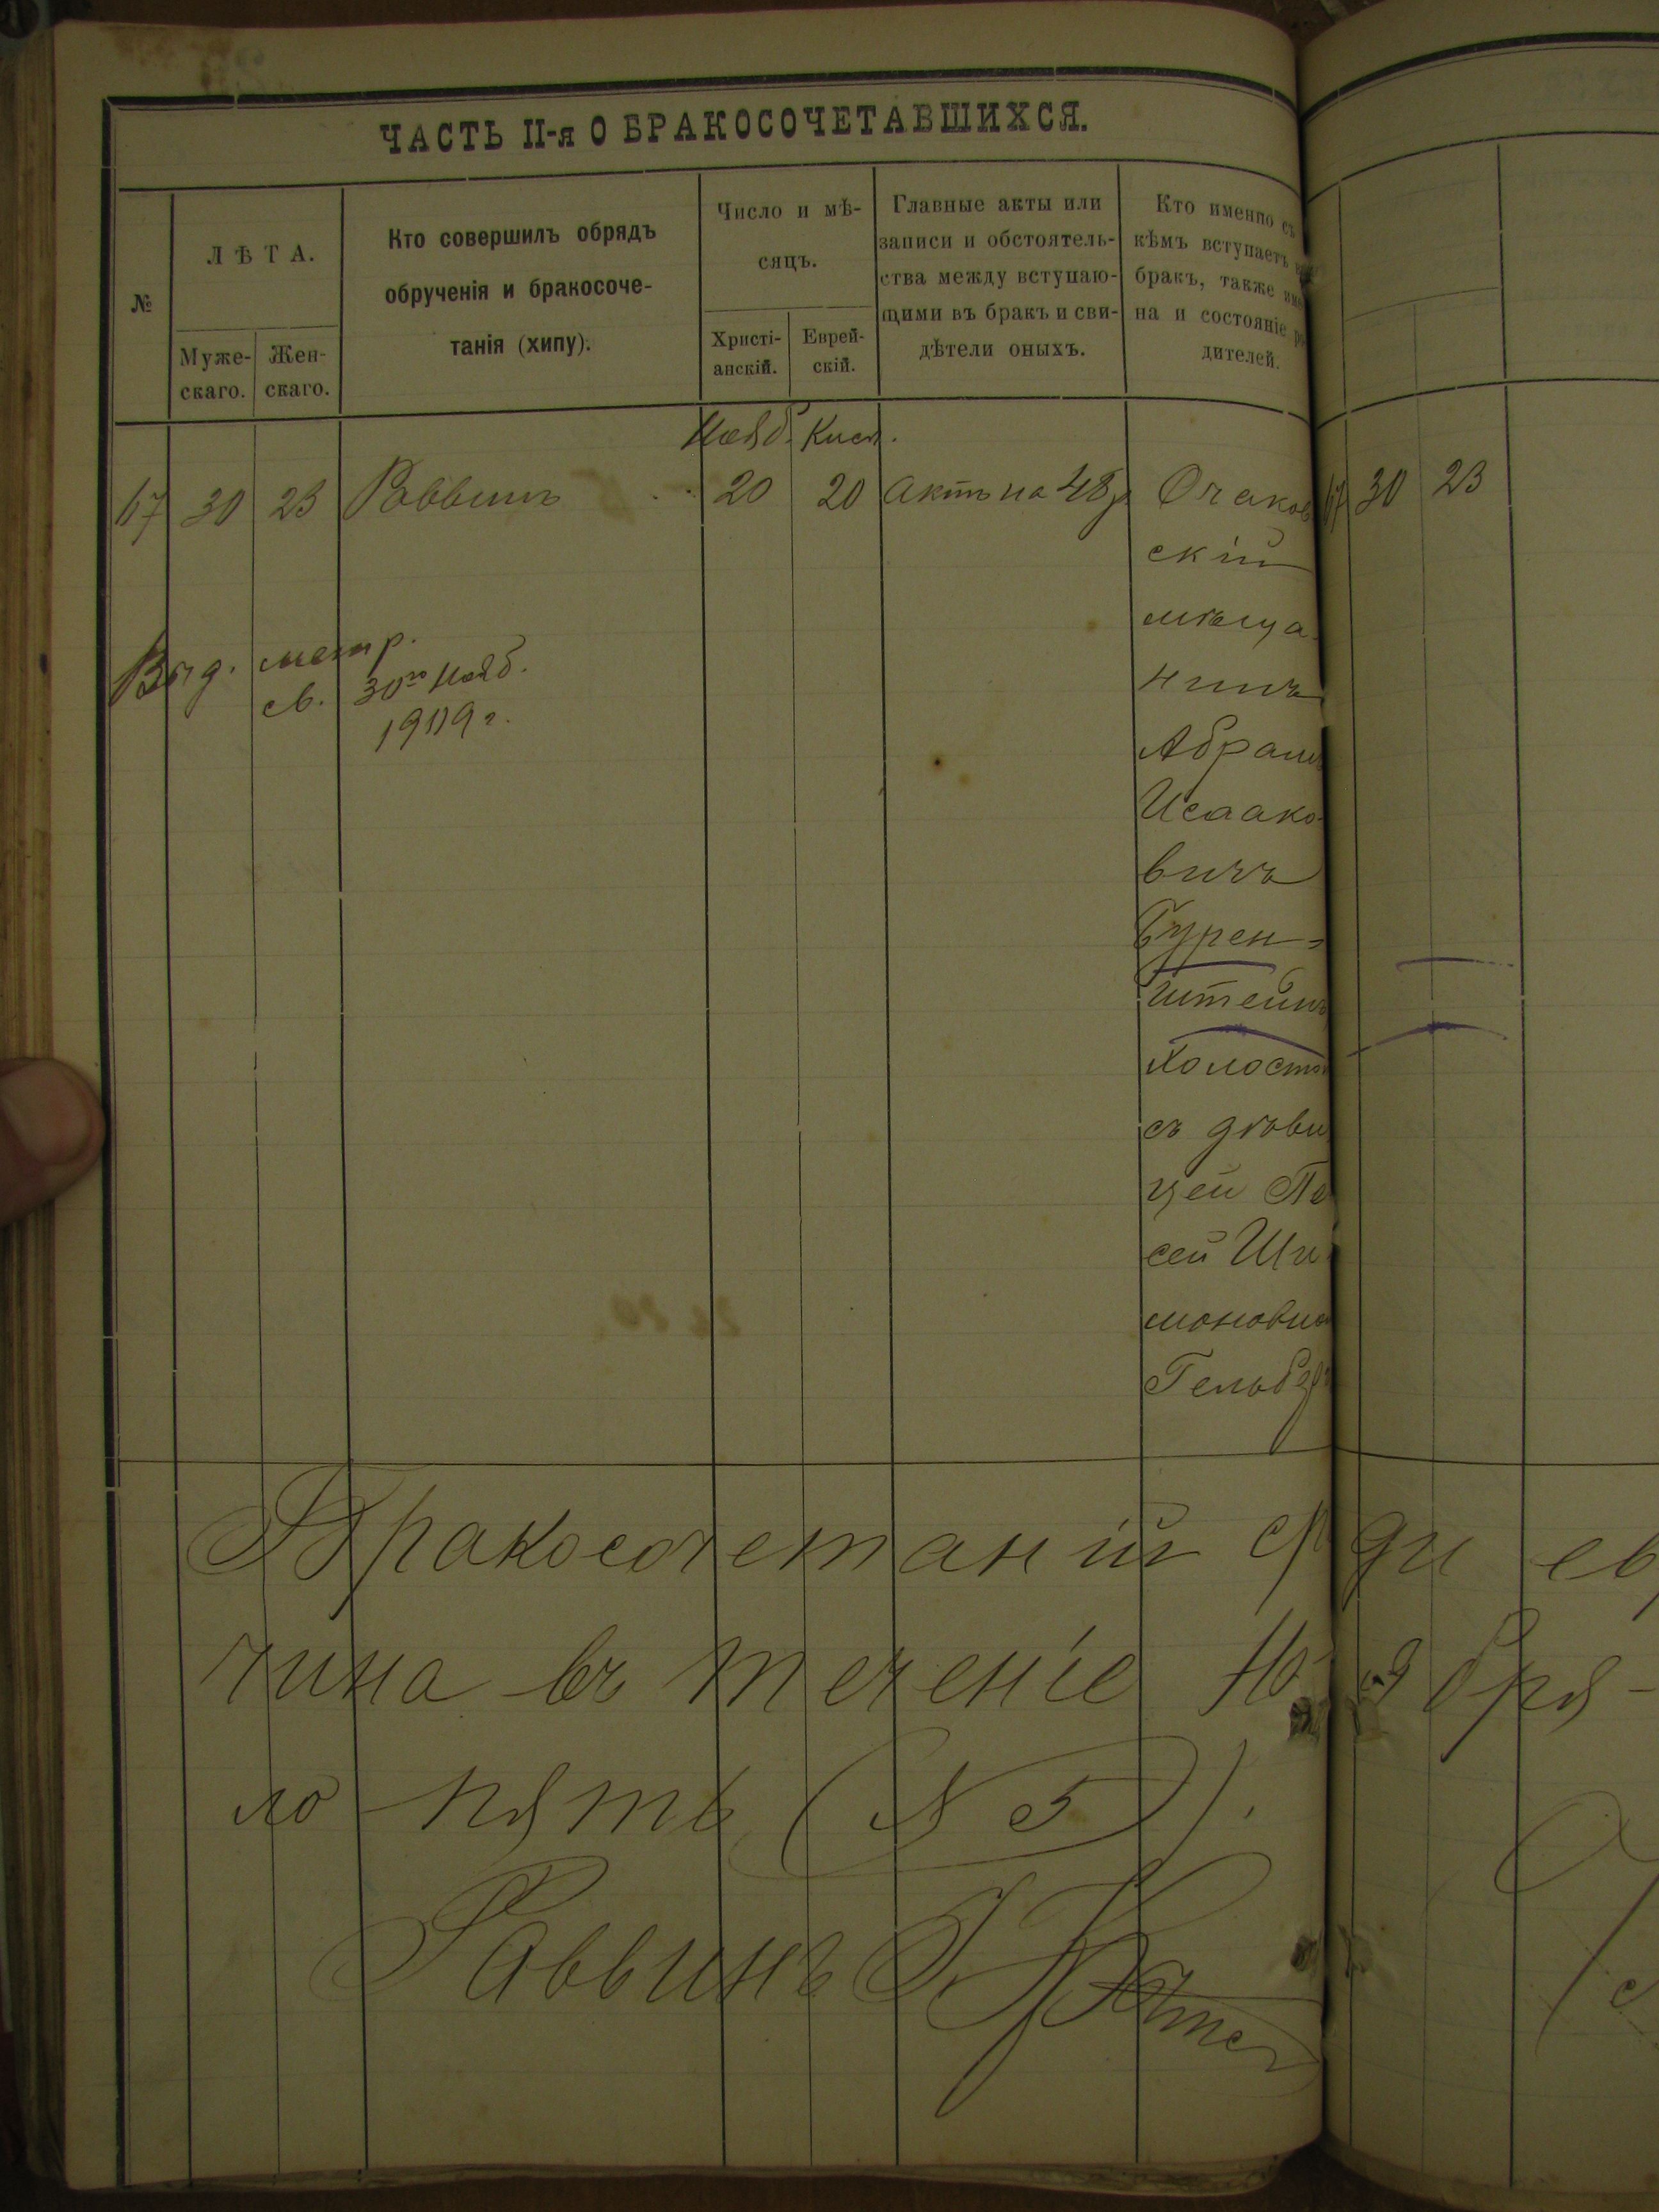 ЧАСТЬ II-я О БРАКОСОЧЕТАВШИХСЯ.
№
ЛѢТА.
Муже-
скаго.
Жен-
скаго.
Кто совершилъ обрядъ
обрученія и бракосоче-
танія (хипу).
Число и мѣ-
сяцъ.
Христі-
анскій.
Еврей-
скій.
Главные акты или
записи и обстоятель-
ства между вступаю-
щими въ бракъ и сви-
дѣтели оныхъ.
Кто именно съ
кѣмъ вступаетъ
бракъ, также
на и состояніе
дителей.
Нояб. Кисл.
67 30 23 Раввинъ 20 20 Актъ на 48 р. Очаков 67 30 23
скій
мѣща-
нинъ
Абрамъ
Исаако-
вичъ
Бурен-
штейнъ
холостой
съ дѣви
цей Пе
сей Ши
моновной
Гельбурдъ
Выд. метр.
св. 30го Нояб.
1909 г.
Бракосочетаній ср ди ев
чина въ теченіе Но ября -
ло пять (№ 5).
Раввинъ